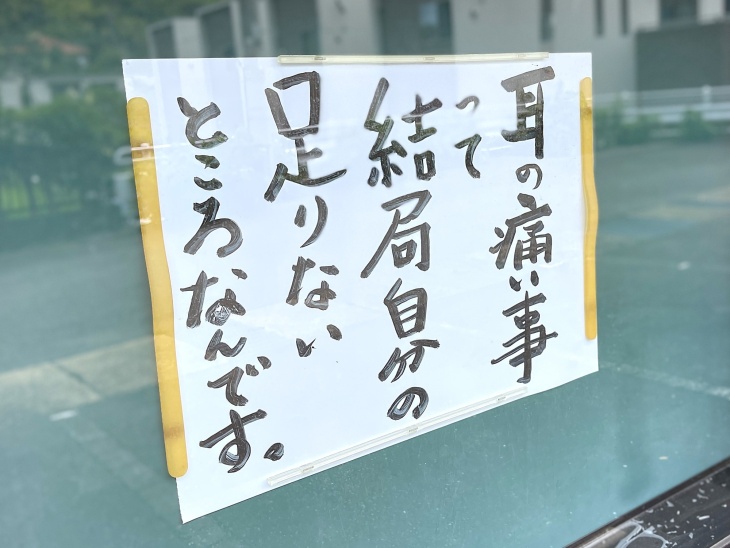 耳の痛い事
って
結局自分の
足りない
ところなんです。